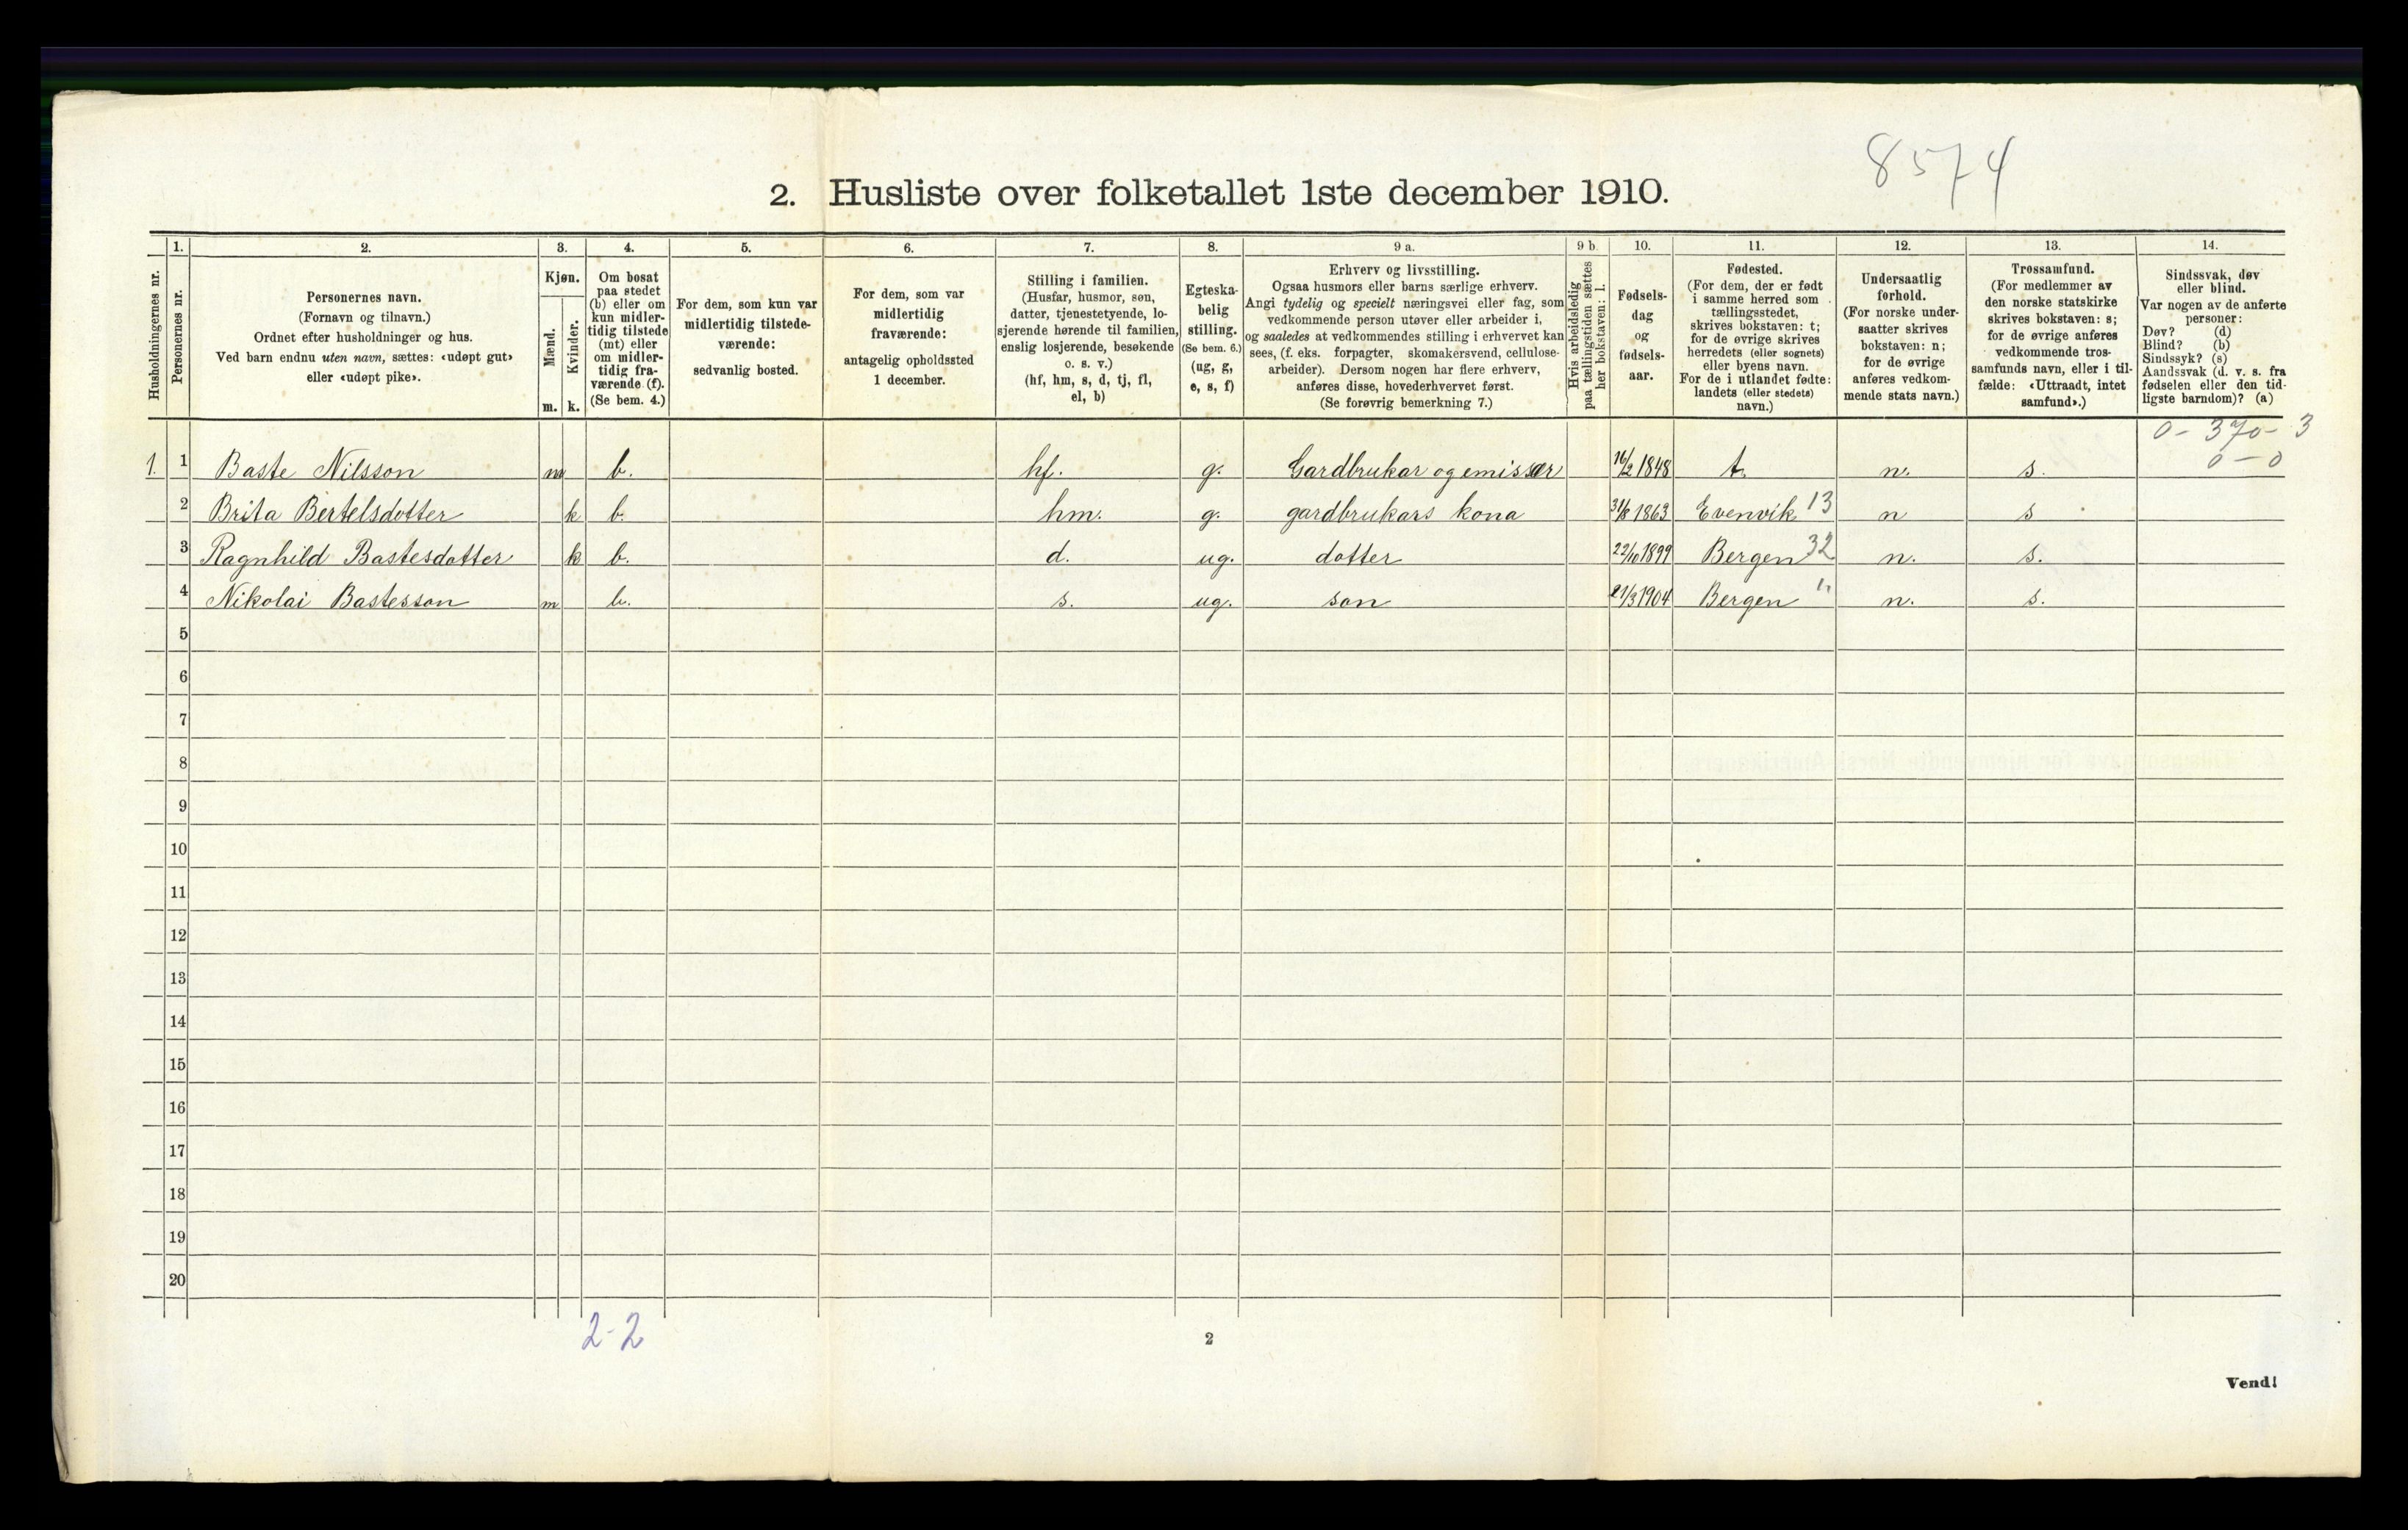 8574
2. Husliste over folketallet 1ste december 1910.
Husholdningernes nr.
1.
Personernes nr.
2.
Personernes navn.
(Fornavn og tilnavn.)
Ordnet efter husholdninger og hus.
Ved barn endnu uten navn, sættes: «udøpt gut»
eller «udøpt pike».
3.
Kjøn.
Mænd.
m.
Kvinder.
k.
4.
Om bosat
paa stedet
(b) eller om
kun midler-
tidig tilstede
(mt) eller
om midler-
tidig fra-
værende (f).
(Se bem. 4.)
5.
For dem, som kun var
midlertidig tilstede-
værende:
sedvanlig bosted.
6.
For dem, som var
midlertidig
fraværende:
antagelig opholdssted
1 december.
7.
Stilling i familien.
(Husfar, husmor, søn,
datter, tjenestetyende, lo-
sjerende hørende til familien,
enslig losjerende, besøkende
o. s. v.)
(hf, hm, s, d, tj, fl,
el, b)
8.
Egteska-
belig
stilling.
(Se bem. 6.)
(ug, g,
e, s, f)
9 a.
Erhverv og livsstilling.
Ogsaa husmors eller barns særlige erhverv.
Angi tydelig og specielt næringsvei eller fag, som
vedkommende person utøver eller arbeider i,
og saaledes at vedkommendes stilling i erhvervet kan
sees, (f. eks. forpagter, skomakersvend, cellulose-
arbeider). Dersom nogen har flere erhverv,
anføres disse, hovederhvervet først.
(Se forøvrig bemerkning 7.)
9 b.
Hvis arbeidsledig
paa tællingstiden sættes
her bokstaven: l.
10.
Fødsels-
dag
og
fødsels-
aar.
11.
Fødested.
(For dem, der er født
i samme herred som
tællingsstedet,
skrives bokstaven: t;
for de øvrige skrives
herredets (eller sognets)
eller byens navn.
For de i utlandet fødte:
landets (eller stedets)
navn.)
12.
Undersaatlig
forhold.
(For norske under-
saatter skrives
bokstaven: n;
for de øvrige
anføres vedkom-
mende stats navn.)
13.
Trossamfund.
(For medlemmer av
den norske statskirke
skrives bokstaven: s;
for de øvrige anføres
vedkommende tros-
samfunds navn, eller i til-
fælde: «Uttraadt, intet
samfund».)
14.
Sindssvak, døv
eller blind.
Var nogen av de anførte
personer:
Døv? (d)
Blind? (b)
Sindssyk? (s)
Aandssvak (d. v. s. fra
fødselen eller den tid-
ligste barndom)? (a)
0-370-3
0-0
1. 1 Baste Nilsson m b. hf. g. Gardbrukar og emissær 16/2 1848 t. n. s.
2 Brita Bertelsdotter k b. hm. g. gardbrukars kona 31/8 1863 Evenvik 13 n s
3 Ragnhild Bastesdotter k b. d. ug. dotter 22/10 1899 Bergen 32 n. s.
4 Nikolai Bastesson m b. s. ug. son 21/3 1904 Bergen " n. s.
5
6
7
8
9
10
11
12
13
14
15
16
17
18
19
20
2-2
2
Vend!